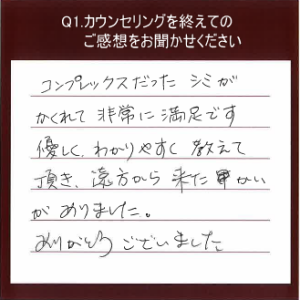 Q1.カウンセリングを終えての
ご感想をお聞かせください
コンプレックスだった シミが
かくれて 非常に 満足です
優しく、わかりやすく 教えて
頂き、遠方から 来た 甲かい
が ありました。
ありがとう ございました